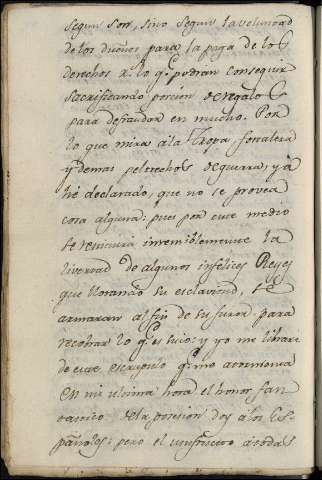 segun son, sino segun la voluntad
de los dueños para la paga de los
derechos Rs. lo qe. podran conseguir
sacrificando porcion de regalos
para defraudar en mucho. Por
lo que mira a la Tropa, fortaleza
y demas peltrechos de guerra, ya
hé declarado, que no se provea
cosa alguna: pues por este medio
se restituirá insensiblemente la
livertad de algunos infelices Reyes
que llorando su esclavitud, se
armaran al fin de su furor para
recobrar lo qe. es suio: y yo me librare
de este escrupulo qe. me atormenta
en mi ultima hora el honor fan
tastico. De la posesion doy a los Es-
pañoles: pero el usufructo a todas